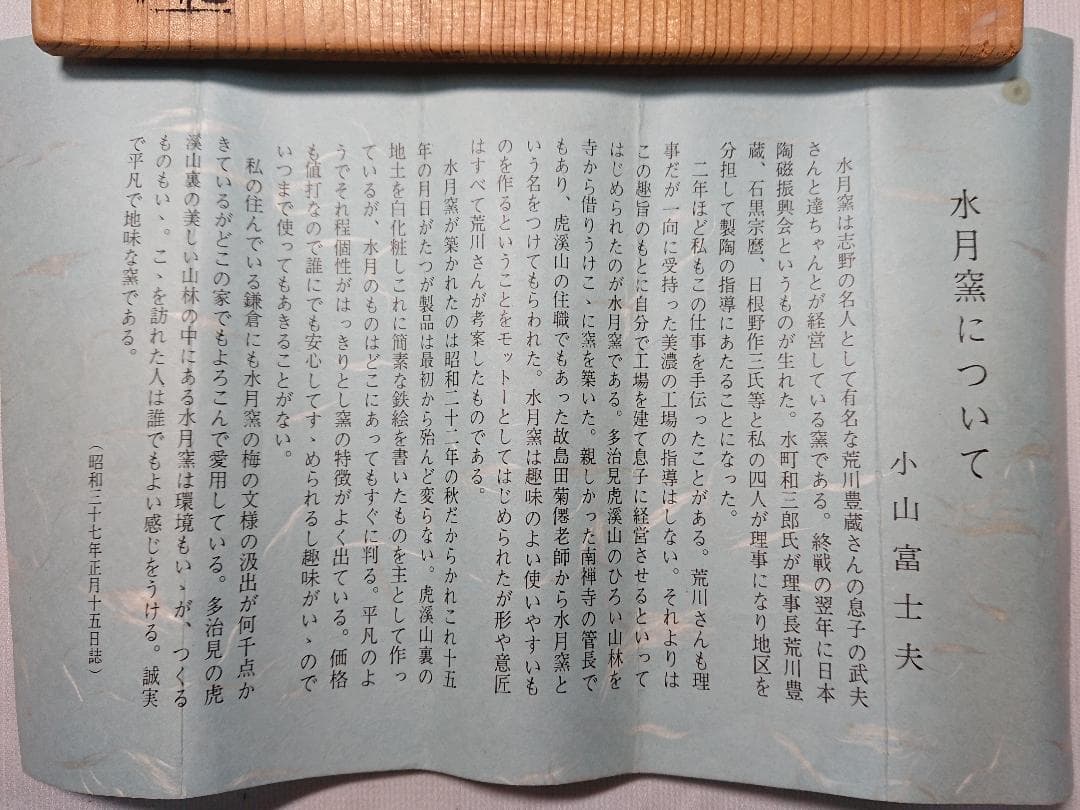 水月窯について
小山富士夫
水月窯は志野の名人として有名な荒川豊蔵さんの息子の武夫
さんと達ちゃんとが経営している窯である。終戦の翌年に日本
陶磁振興会というものが生れた。水町和三郎氏が理事長荒川豊
蔵、石黒宗麿、日根野作三氏等と私の四人が理事になり地区を
分担して製陶の指導にあたることになった。
二年ほど私もこの仕事を手伝ったことがある。荒川さんも理
事だが一向に受持った美濃の工場の指導はしない。それよりは
この趣旨のもとに自分で工場を建て息子に経営させるといって
はじめられたのが水月窯である。多治見虎溪山のひろい山林を
寺から借りうけこゝに窯を築いた。親しかった南禅寺の管長で
もあり、虎溪山の住職でもあった故島田菊僊老師から水月窯と
いう名をつけてもらわれた。水月窯は趣味のよい使いやすいも
のを作るということをモットーとしてはじめられたが形や意匠
はすべて荒川さんが考案したものである。
水月窯が築かれたのは昭和二十二年の秋だからかれこれ十五
年の月日がたつが製品は最初から殆んど変らない。虎溪山裏の
地土を白化粧しこれに簡素な鉄絵を書いたものを主として作っ
ているが、水月のものはどこにあってもすぐに判る。平凡のよ
うでそれ程個性がはっきりとし窯の特徴がよく出ている。価格
も値打なので誰にでも安心してすゝめられるし趣味がいゝので
いつまで使ってもあきることがない。
私の住んでいる鎌倉にも水月窯の梅の文様の汲出が何千点か
きているがどこの家でもよろこんで愛用している。多治見の虎
溪山裏の美しい山林の中にある水月窯は環境もいゝが、つくる
ものもいゝ。こゝを訪れた人は誰でもよい感じをうける。誠実
で平凡で地味な窯である。
（昭和三十七年正月十五日誌）